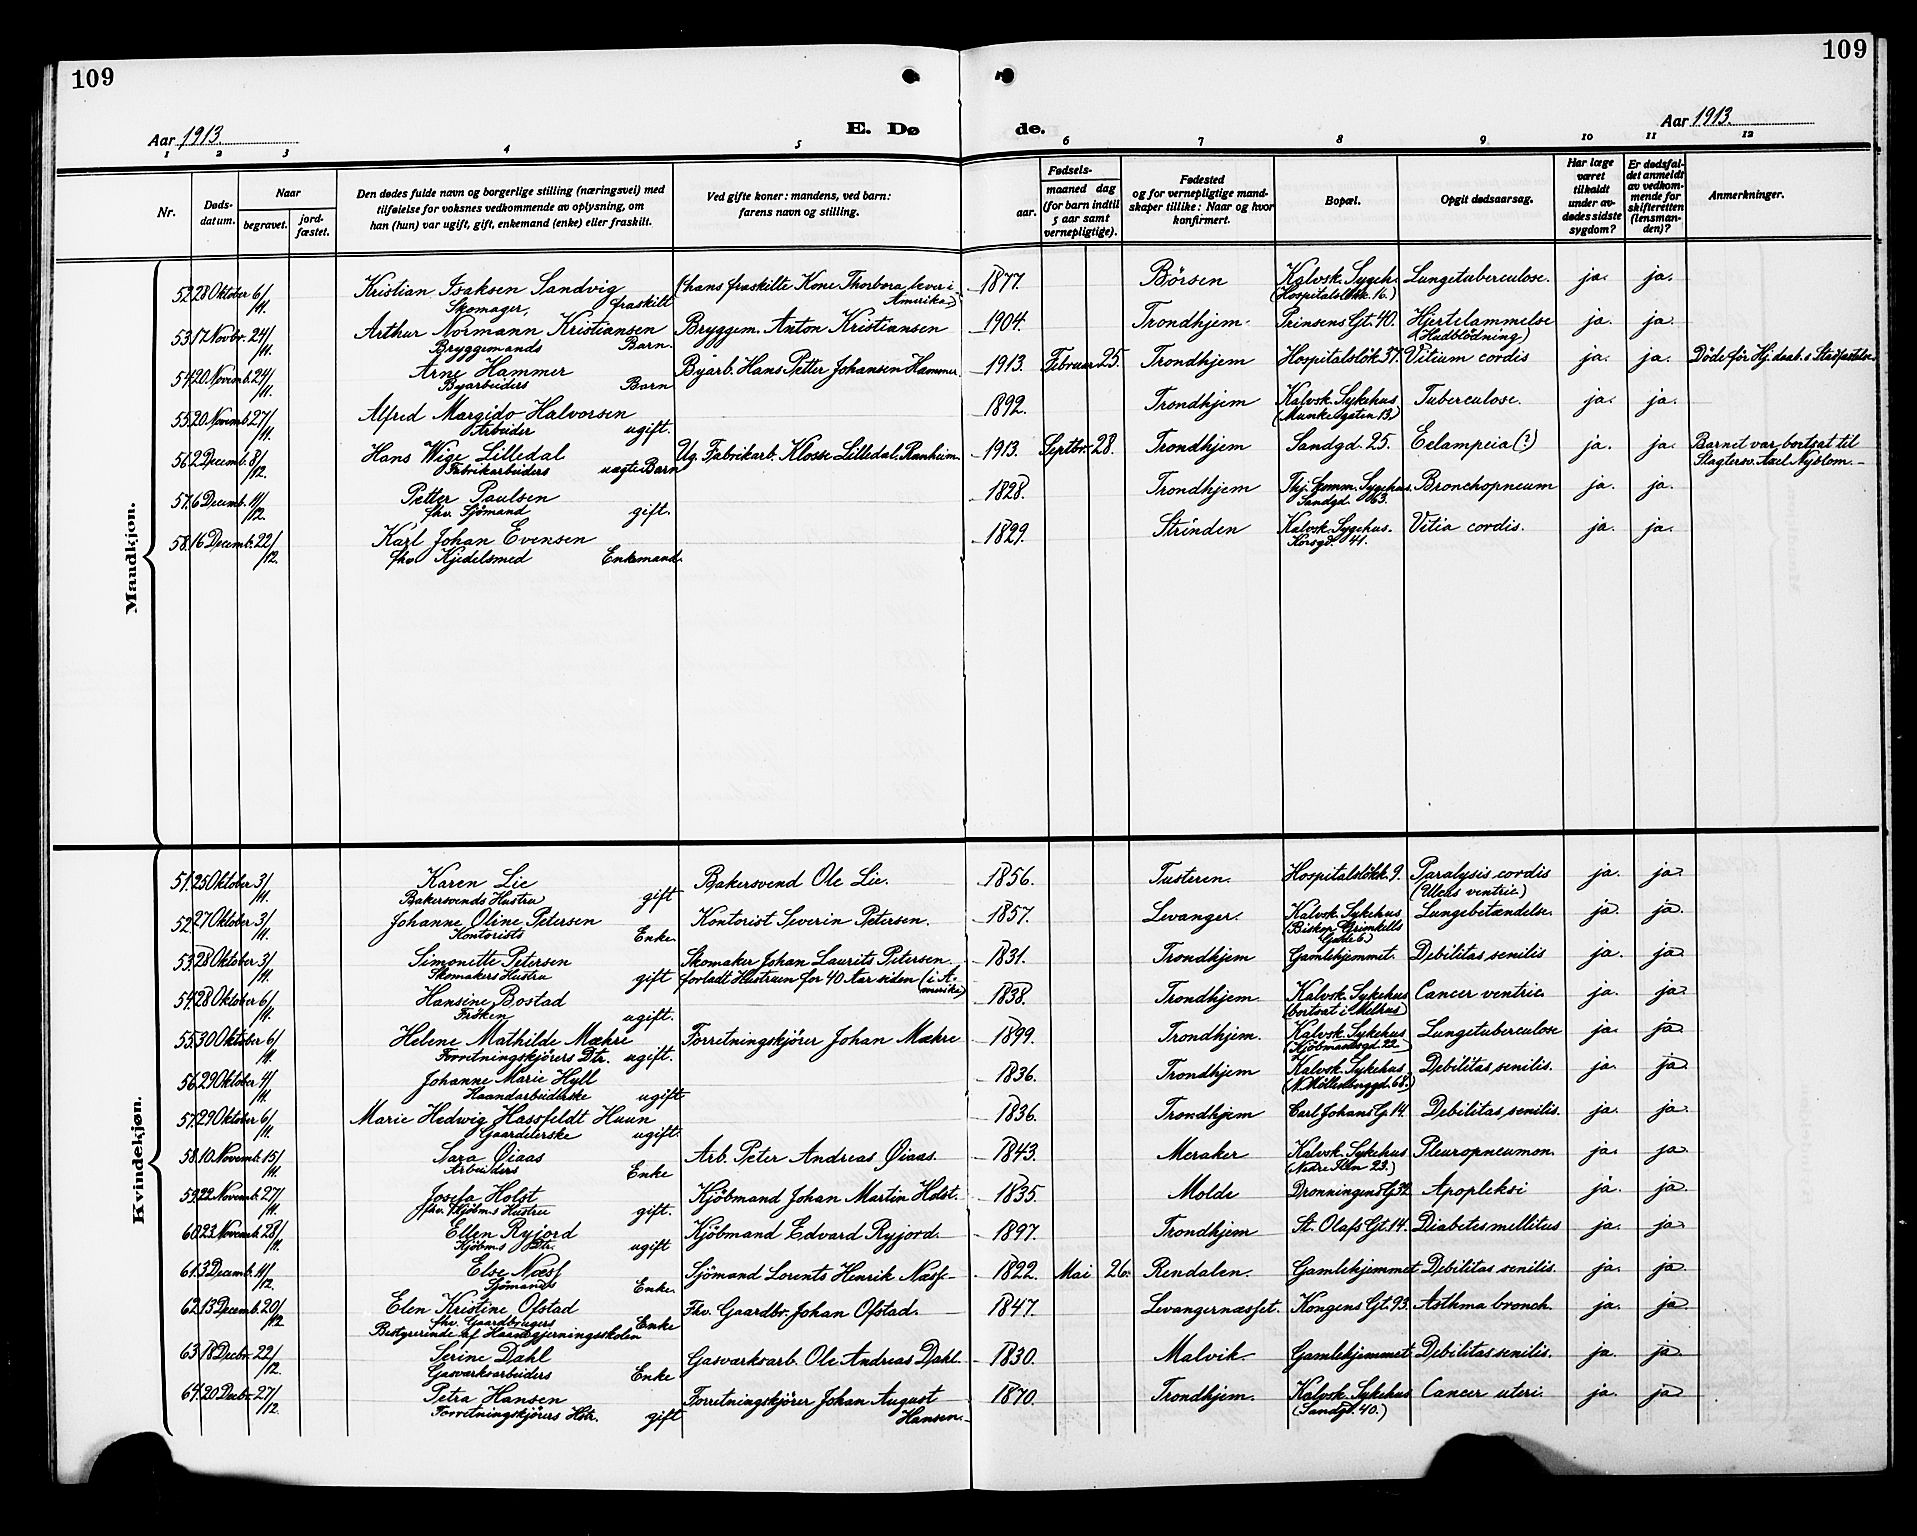 109
109
Aar 1913.
E. Dø
de.
Aar 1913.
1 2 3 4 5 6 7 8 9 10 11 12
Nr.
Døds-
datum.
Naar
begravet.
jord-
fæstet.
Den dødes fulde navn og borgerlige stilling (næringsvei) med
tilføielse for voksnes vedkommende av oplysning, om
han (hun) var ugift, gift, enkemand (enke) eller fraskilt.
Ved gifte koner: mandens, ved barn:
farens navn og stilling.
aar.
Fødsels-
maaned dag
(for barn indtil
5 aar samt
vernepligtige).
Fødested
og for vernepligtige mand-
skaper tillike: Naar og hvor
konfirmert.
Bopæl.
Opgit dødsaarsag.
Har læge
været
tilkaldt
under av-
dødes sidste
sygdom?
Er dødsfal-
det anmeldt
av vedkom-
mende for
skifteretten
(lensman-
den)?
Anmerkninger.
Mandkjøn.
52 28 Oktober 6/11. Kristian Isaksen Sandvig (hans fraskilte Kone Thorbora lever i 1877. Børsen Kalvsk. Sygeh. Lungetuberculose. ja. ja.
Skomager, fraskilt Amerika) (Hospitalsløkk. 16.)
53 17 Novbr. 24/11. Arthur Normann Kristiansen Bryggem. Anton Kristiansen 1904. Trondhjem Prinsens Gt. 40. Hjertelammelse ja. ja.
Bryggemands Barn. (Hudblödning)
54 20. Novemb. 24/11. Arne Hammer Byarb. Hans Petter Johansen Hammer 1913. Februar 25. Trondhjem Hospitalsløk. 37. Vitium cordis ja. ja. Døde før Hj.daab.s Stadfæstelse
Byarbeiders Barn
55. 20 Novemb. 27/11. Alfred Margido Halvorsen 1892. Trondhjem Kalvsk. Sykehus Tuberculose. ja. ja.
Arbeider ugift. (Munkegaten 13.)
56 2 Decemb. 8/12. Hans Wige Lilledal Ug. Fabrikarb. Klosse Lilledal, Ranheim 1913. Septbr. 28. Trondhjem Sandgd. 25. Eclampeia (?) ja. ja. Barnet var bortsat til
Fabrikarbeiders uægte Barn Slagtersv. Axel Nyblom.
57. 6 Decemb. 11/12. Petter Paulsen 1828. Trondhjem Thj. Komm. Sygehus. Bronchopneum ja. ja.
fhv. Sjömand gift. Sandgd. 63.
58. 16 Decemb. 22/12. Karl Johan Evensen 1829. Strinden Kalvsk. Sygehus. Vitia cordis. ja. ja.
fhv. Kjedelsmed Enkemand. Korsgd. 41.
Kvindekjøn.
51. 25 Oktober 3/11. Karen Lie Bakersvend Ole Lie. 1856. Tusteren. Hospitalsløkk. 9. Paralysis cordis ja. ja
Bakersvends Hustru gift (Ulcus ventric)
52 27 Oktober 3/11. Johanne Oline Petersen Kontorist Severin Petersen. 1857. Levanger. Kalvsk. Sykehus Lungebetændelse. ja ja.
Kontorists Enke. (Biskop Grimkells
Gate 6)
53. 28 Oktober 3/11. Simonette Petersen Skomaker Johan Laurits Petersen. 1831. Trondhjem Gamlehjemmet. Debilitas senilis ja. ja
Skomakers Hustru gift forladt Hustruen for 40 Aar siden (i A-
merika)
54. 28 Oktober 6/11. Hansine Bostad 1838. Trondhjem. Kalvsk. Sykehus Cancer ventric. ja. ja.
Frøken ugift. (bortsat i Melhus)
55. 30 Oktober 6/11. Helene Mathilde Mæhre Forretningskjører Johan Mæhre 1899. Trondhjem. Kalvsk. Sykehus Lungetuberculose ja. ja.
Forretningskjörers Dtr. ugift. (Kjöbmandsgd. 22)
56. 29 Oktober 4/11. Johanne Marie Hyll 1836. Trondhjem Kalvsk. Sykehus Debilitas senilis. ja. ja
Haandarbeiderske ugift (N. Möllenberggd. 68.)
57. 29 Oktober 6/11. Marie Hedwig Hassfeldt Huun 1836. Trondhjem Carl Johans G. 14. Debilitas senilis. ja. ja
Gaardeierske ugift.
58. 10. Novemb. 15/11. Sara Øiaas Arb. Peter Andreas Øiaas. 1843. Meraker Kalvsk. Sykehus Pleuropneumon. ja. ja.
Arbeiders Enke (Nedre Ilen 23.)
59. 22. Novemb. 27/11. Josefa Holst Kjöbmand Johan Martin Holst. 1835. Molde Dronningens G. 32 Apopleksi ja. ja.
fhv. Kjöbm.s Hustru gift.
60. 23. Novemb. 28/11. Ellen Ryjord Kjöbmand Edvard Ryjord. 1897. Trondhjem St. Olafs Gt. 14. Diabetes mellitus ja. ja.
Kjöbm.s Dtr. ugift
61. 3 Decemb. 11/12. Else Næss Sjömand Lorents Henrik Næss. 1822. Mai 26. Rendalen. Gamlehjemmet Debilitas senilis. ja. ja
Sjömands Enke.
62. 13. Decemb. 20/12 Elen Kristine Ofstad Fhv. Gaardbr. Johan Ofstad. 1847. Levangernæsset. Kongens Gt. 93. Asthma bronch. ja. ja
fhv. Gaardbrugers Enke
Bestyrerinde af Haandgjerningsskolen
63 18 Decbr. 22/12. Serine Dahl Gasværksarb. Ole Andreas Dahl. 1830. Malvik. Gamlehjemmet Debilitas senilis. ja ja.
Gasværksarbeiders Enke
64. 20. Decbr. 27/12. Petra Hansen Forretningskjører Johan August 1870. Trondhjem. Kalvsk. Sykehus Cancer uteri. ja. ja
Forretningskjörers Hstr. gift Hansen. (Sandgd. 40.)